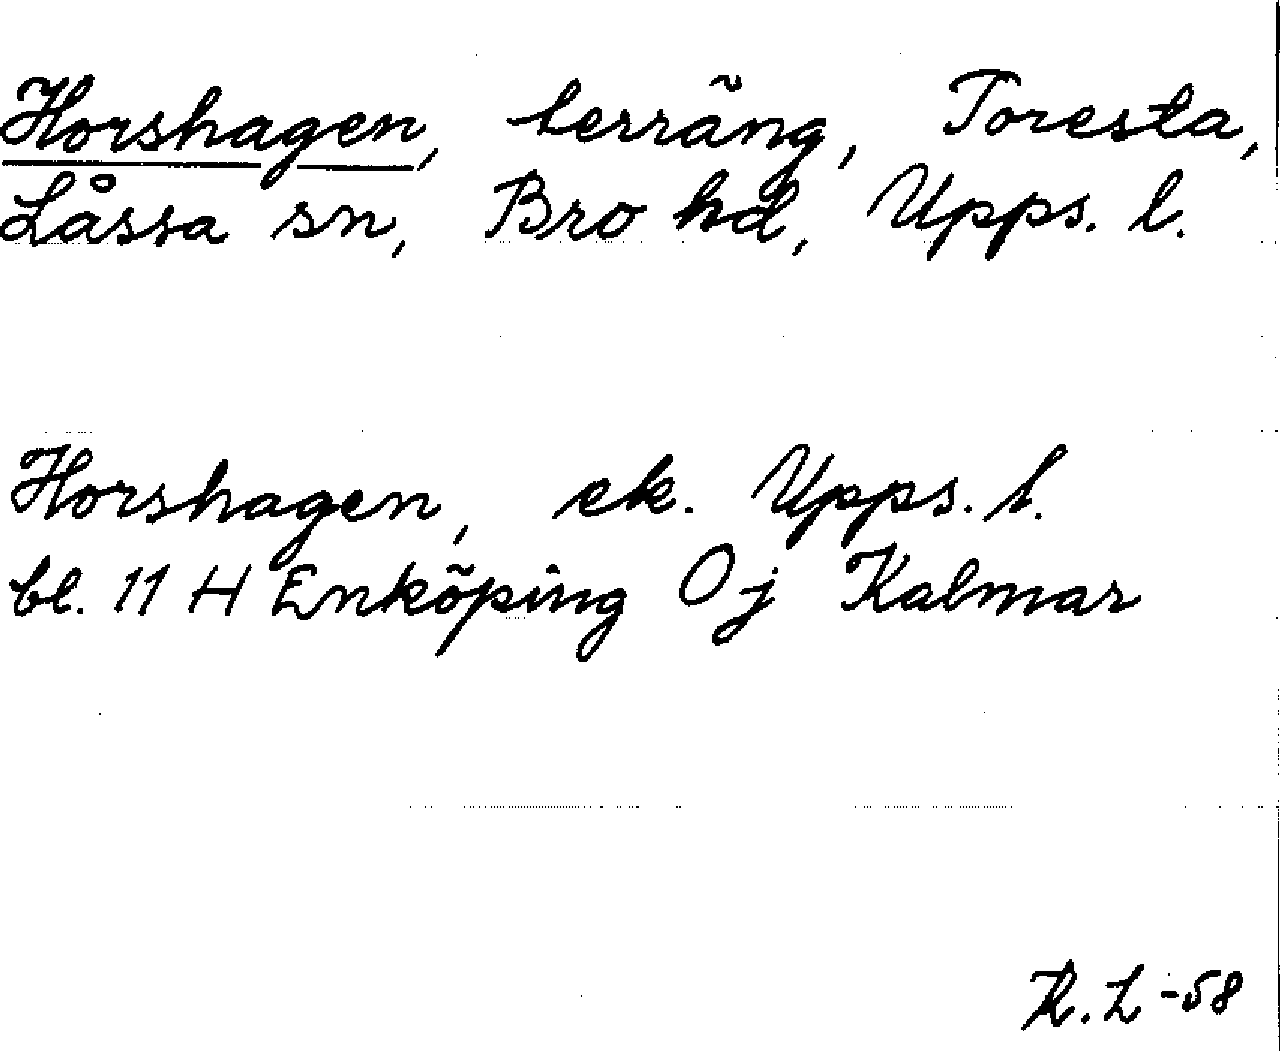 Horshagen, terräng, Toresta,
Låssa sn, Bro hd, Upps. l.
Horshagen, ek. Upps. l.
bl. 11 H Enköping Oj Kalmar
R. L -58